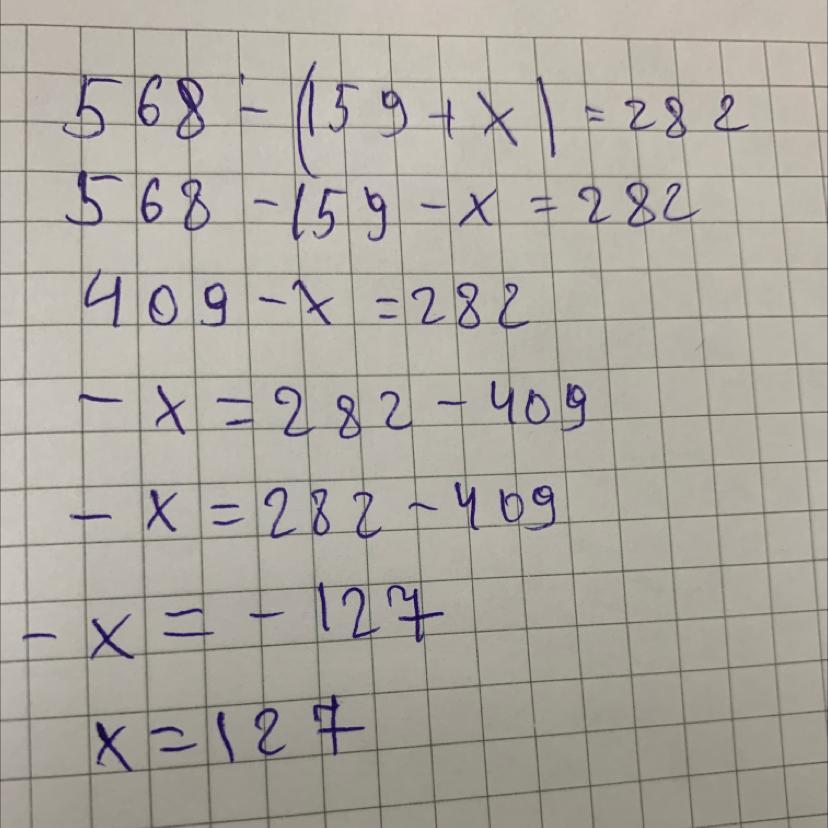 568 - (159 + x) = 282
568 - 159 - x = 282
409 - x = 282
- x = 282 - 409
- x = 282 - 409
- x = - 127
x = 127